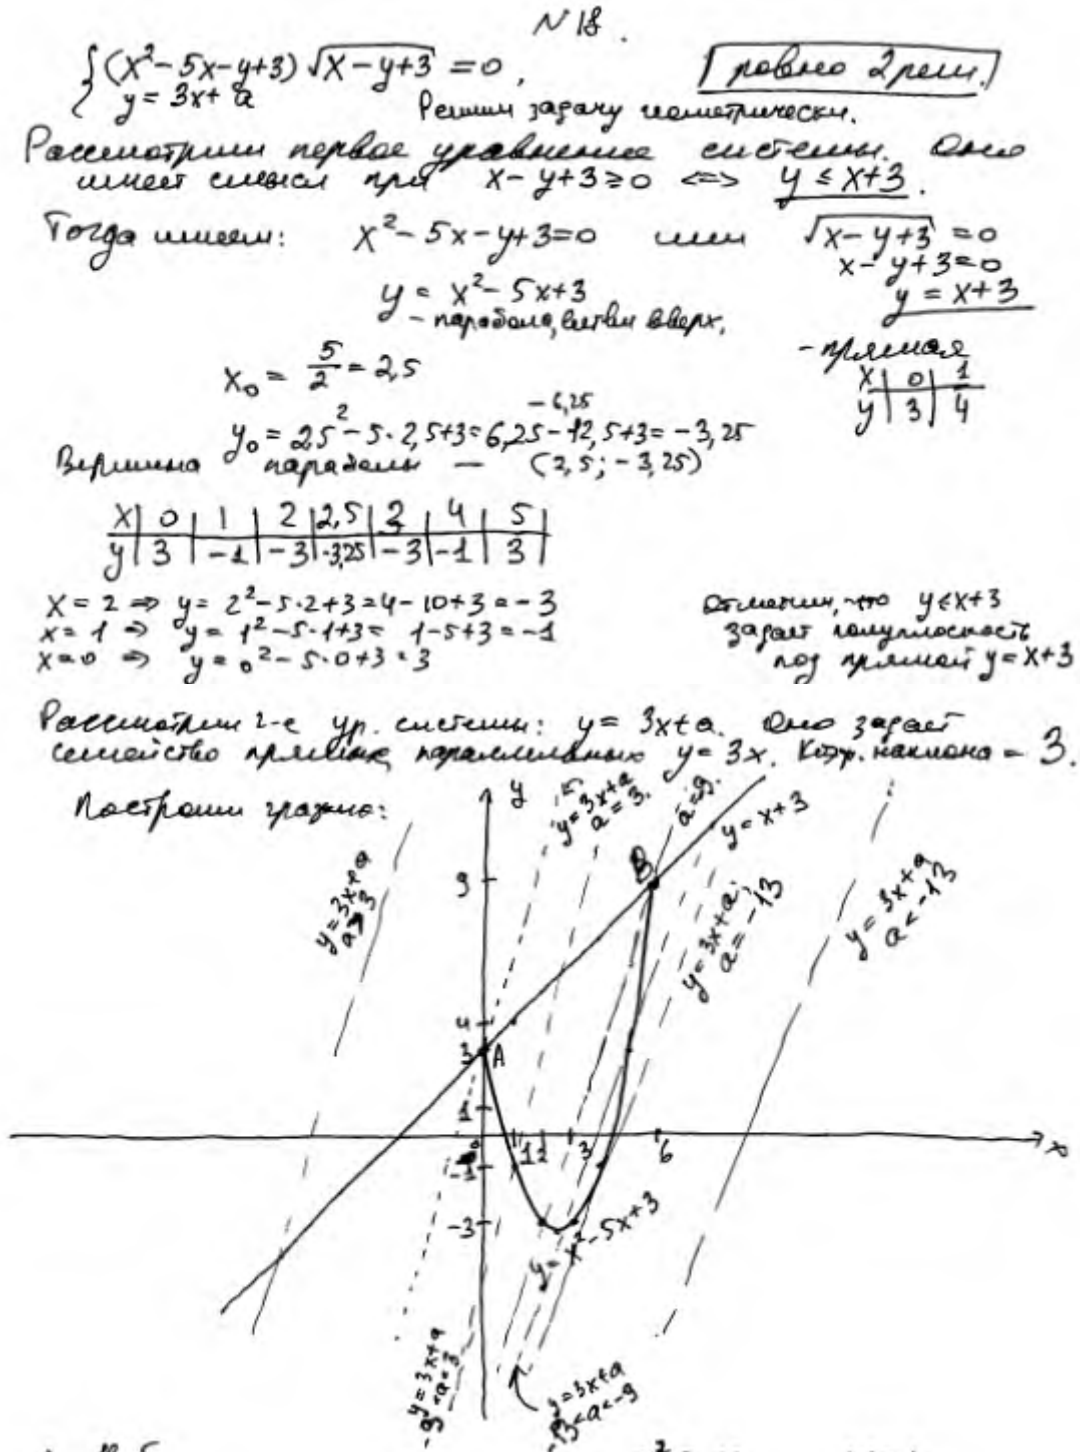 N 18.
{ (x²-5x-y+3) √(x-y+3) = 0,
y = 3x + a
ровно 2 реш.
Решим задачу геометрически.
Рассмотрим первое уравнение системы. Оно
имеет смысл при x-y+3≥0 <=> y ≤ x+3.
Тогда имеем: x²-5x-y+3=0 или √(x-y+3) = 0
x-y+3=0
y = x²-5x+3
y = x+3
- парабола, ветви вверх,
- прямая
x | 0 | 1
y | 3 | 4
x₀ = 5/2 = 2,5
-6,25
y₀ = 2,5²-5·2,5+3=6,25-12,5+3=-3,25
Вершина параболы — (2,5; -3,25)
x | 0 | 1 | 2 | 2,5 | 3 | 4 | 5
y | 3 | -1 | -3 | -3,25 | -3 | -1 | 3
x=2 => y= 2²-5·2+3=4-10+3=-3
x=1 => y= 1²-5·1+3= 1-5+3=-1
x=0 => y=0²-5·0+3=3
Отметим, что y≤x+3
задает полуплоскость
под прямой y=x+3
Рассмотрим 2-е ур. системы: y= 3x+a. Оно задает
семейство прямых, параллельных y= 3x. Коэф. наклона = 3.
Построим график:
y
y=3x+a
a=3.
a=-9.
y=x+3
y=3x+a
a>3
9
B
y=3x+a,
a=-13
y=3x+a
a<-13
4
3
A
1
1 2 3 6
x
-1
-3
y=x²-5x+3
y=3x+a
-9<a<3
y=3x+a
-13<a<-9